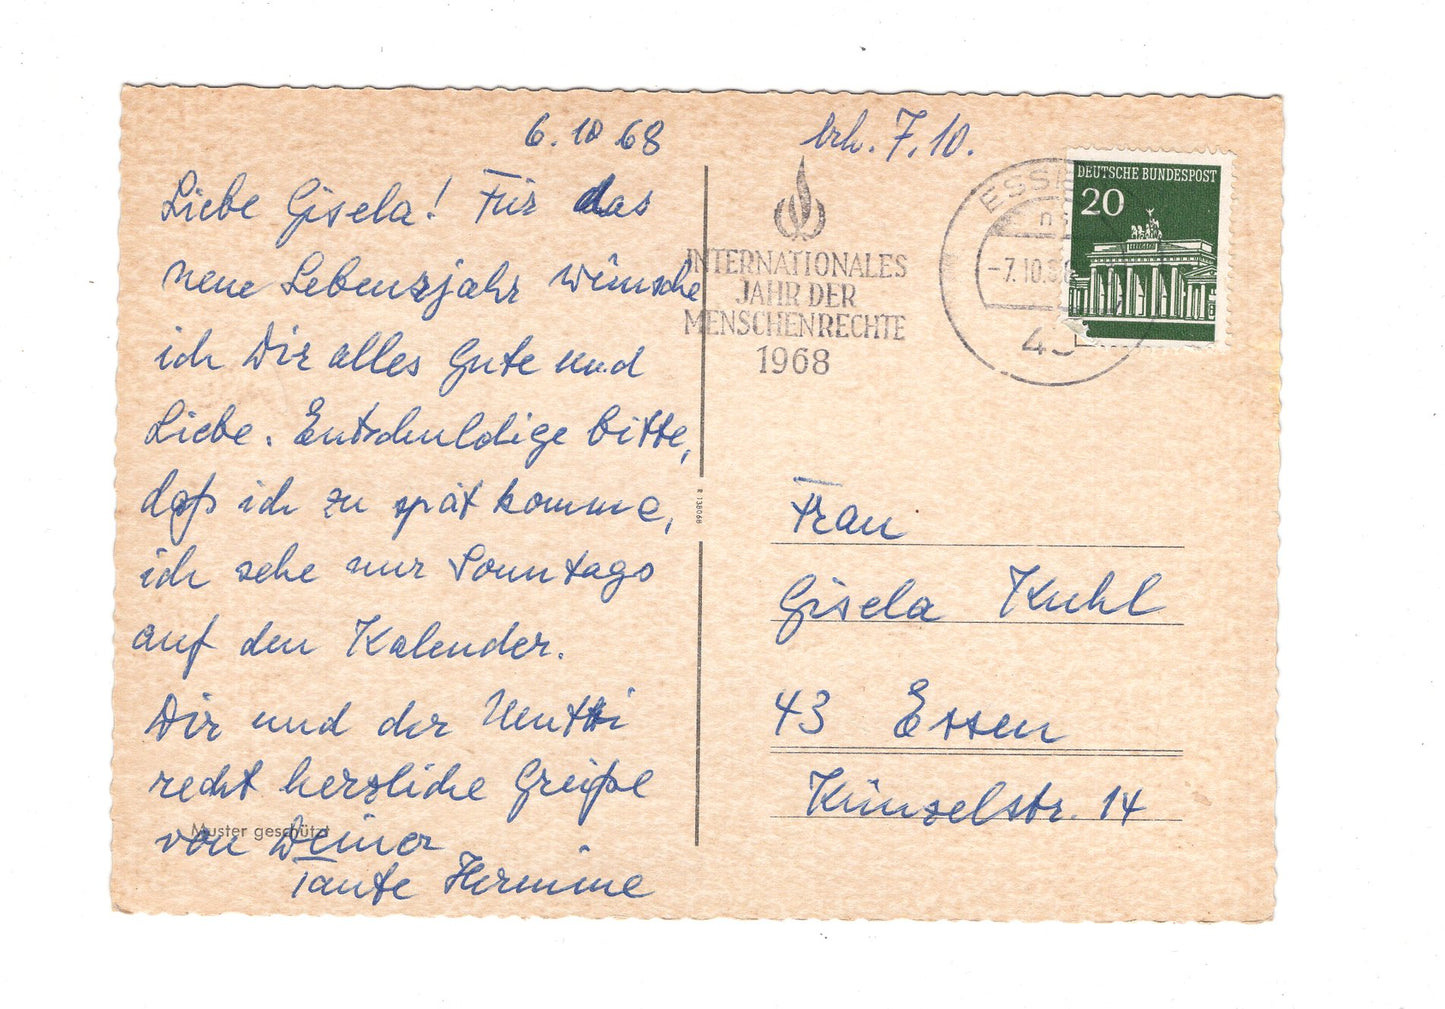 6.10.68
Liebe Gisela! Für das
neue Lebensjahr wünsche
ich Dir alles Gute und
Liebe. Entschuldige bitte,
daß ich zu spät komme,
ich sehe nur Sonntags
auf den Kalender.
Dir und der Mutti
recht herzliche Grüße
von Deiner
Tante Hermine
Muster geschützt
R 138068
erh. 7.10.
INTERNATIONALES
JAHR DER
MENSCHENRECHTE
1968
ESSE
-7.10.
43
DEUTSCHE BUNDESPOST
20
Frau
Gisela Kuhl
43 Essen
Künzelstr. 14